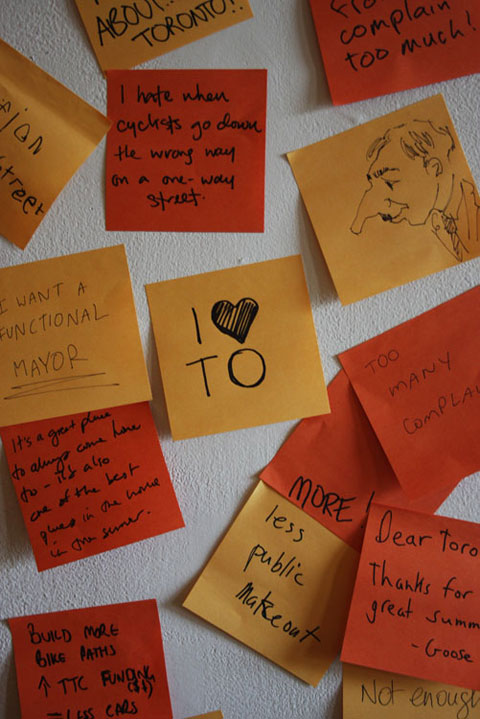 ABOUT..
TORONTO!!
complain
too much!
Street
I hate when
cyclists go down
the wrong way
on a one-way
street.
I WANT A
FUNCTIONAL
MAYOR
I ♥
TO
TOO
MANY
It's a great place
to always come home
to - it's also
one of the best
in the
MORE!
less
public
makeout
Dear Toro
Thanks for
great summ
- Goose
BUILD MORE
BIKE PATHS
↑ TTC FUNDING
($$)
- LESS CARS
Not enough